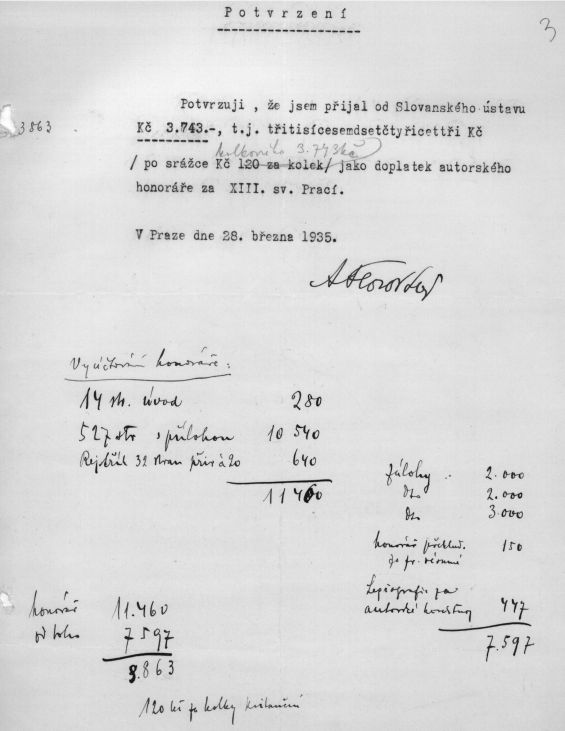 Potvrzení
3
Potvrzuji , že jsem přijal od Slovanského ústavu
3863
Kč 3.743.-, t.j. třitisícesemdsetčtyřicettři Kč
/ po srážce Kč 120 za kolek/ jako doplatek autorského
honoráře za XIII. sv. Prací.
V Praze dne 28. března 1935.
Vyúčtování honoráře:
14 str. úvod 280
527 str s přílohou 10 540
Rejstřík 32 stran à 20 640
11460
Zálohy 2.000
dto 2.000
dto 3.000
honorář překlad. 150
za
za
autorské korektury 447
7.597
honorář 11.460
od toho 7597
3.863
120 kč za kolky